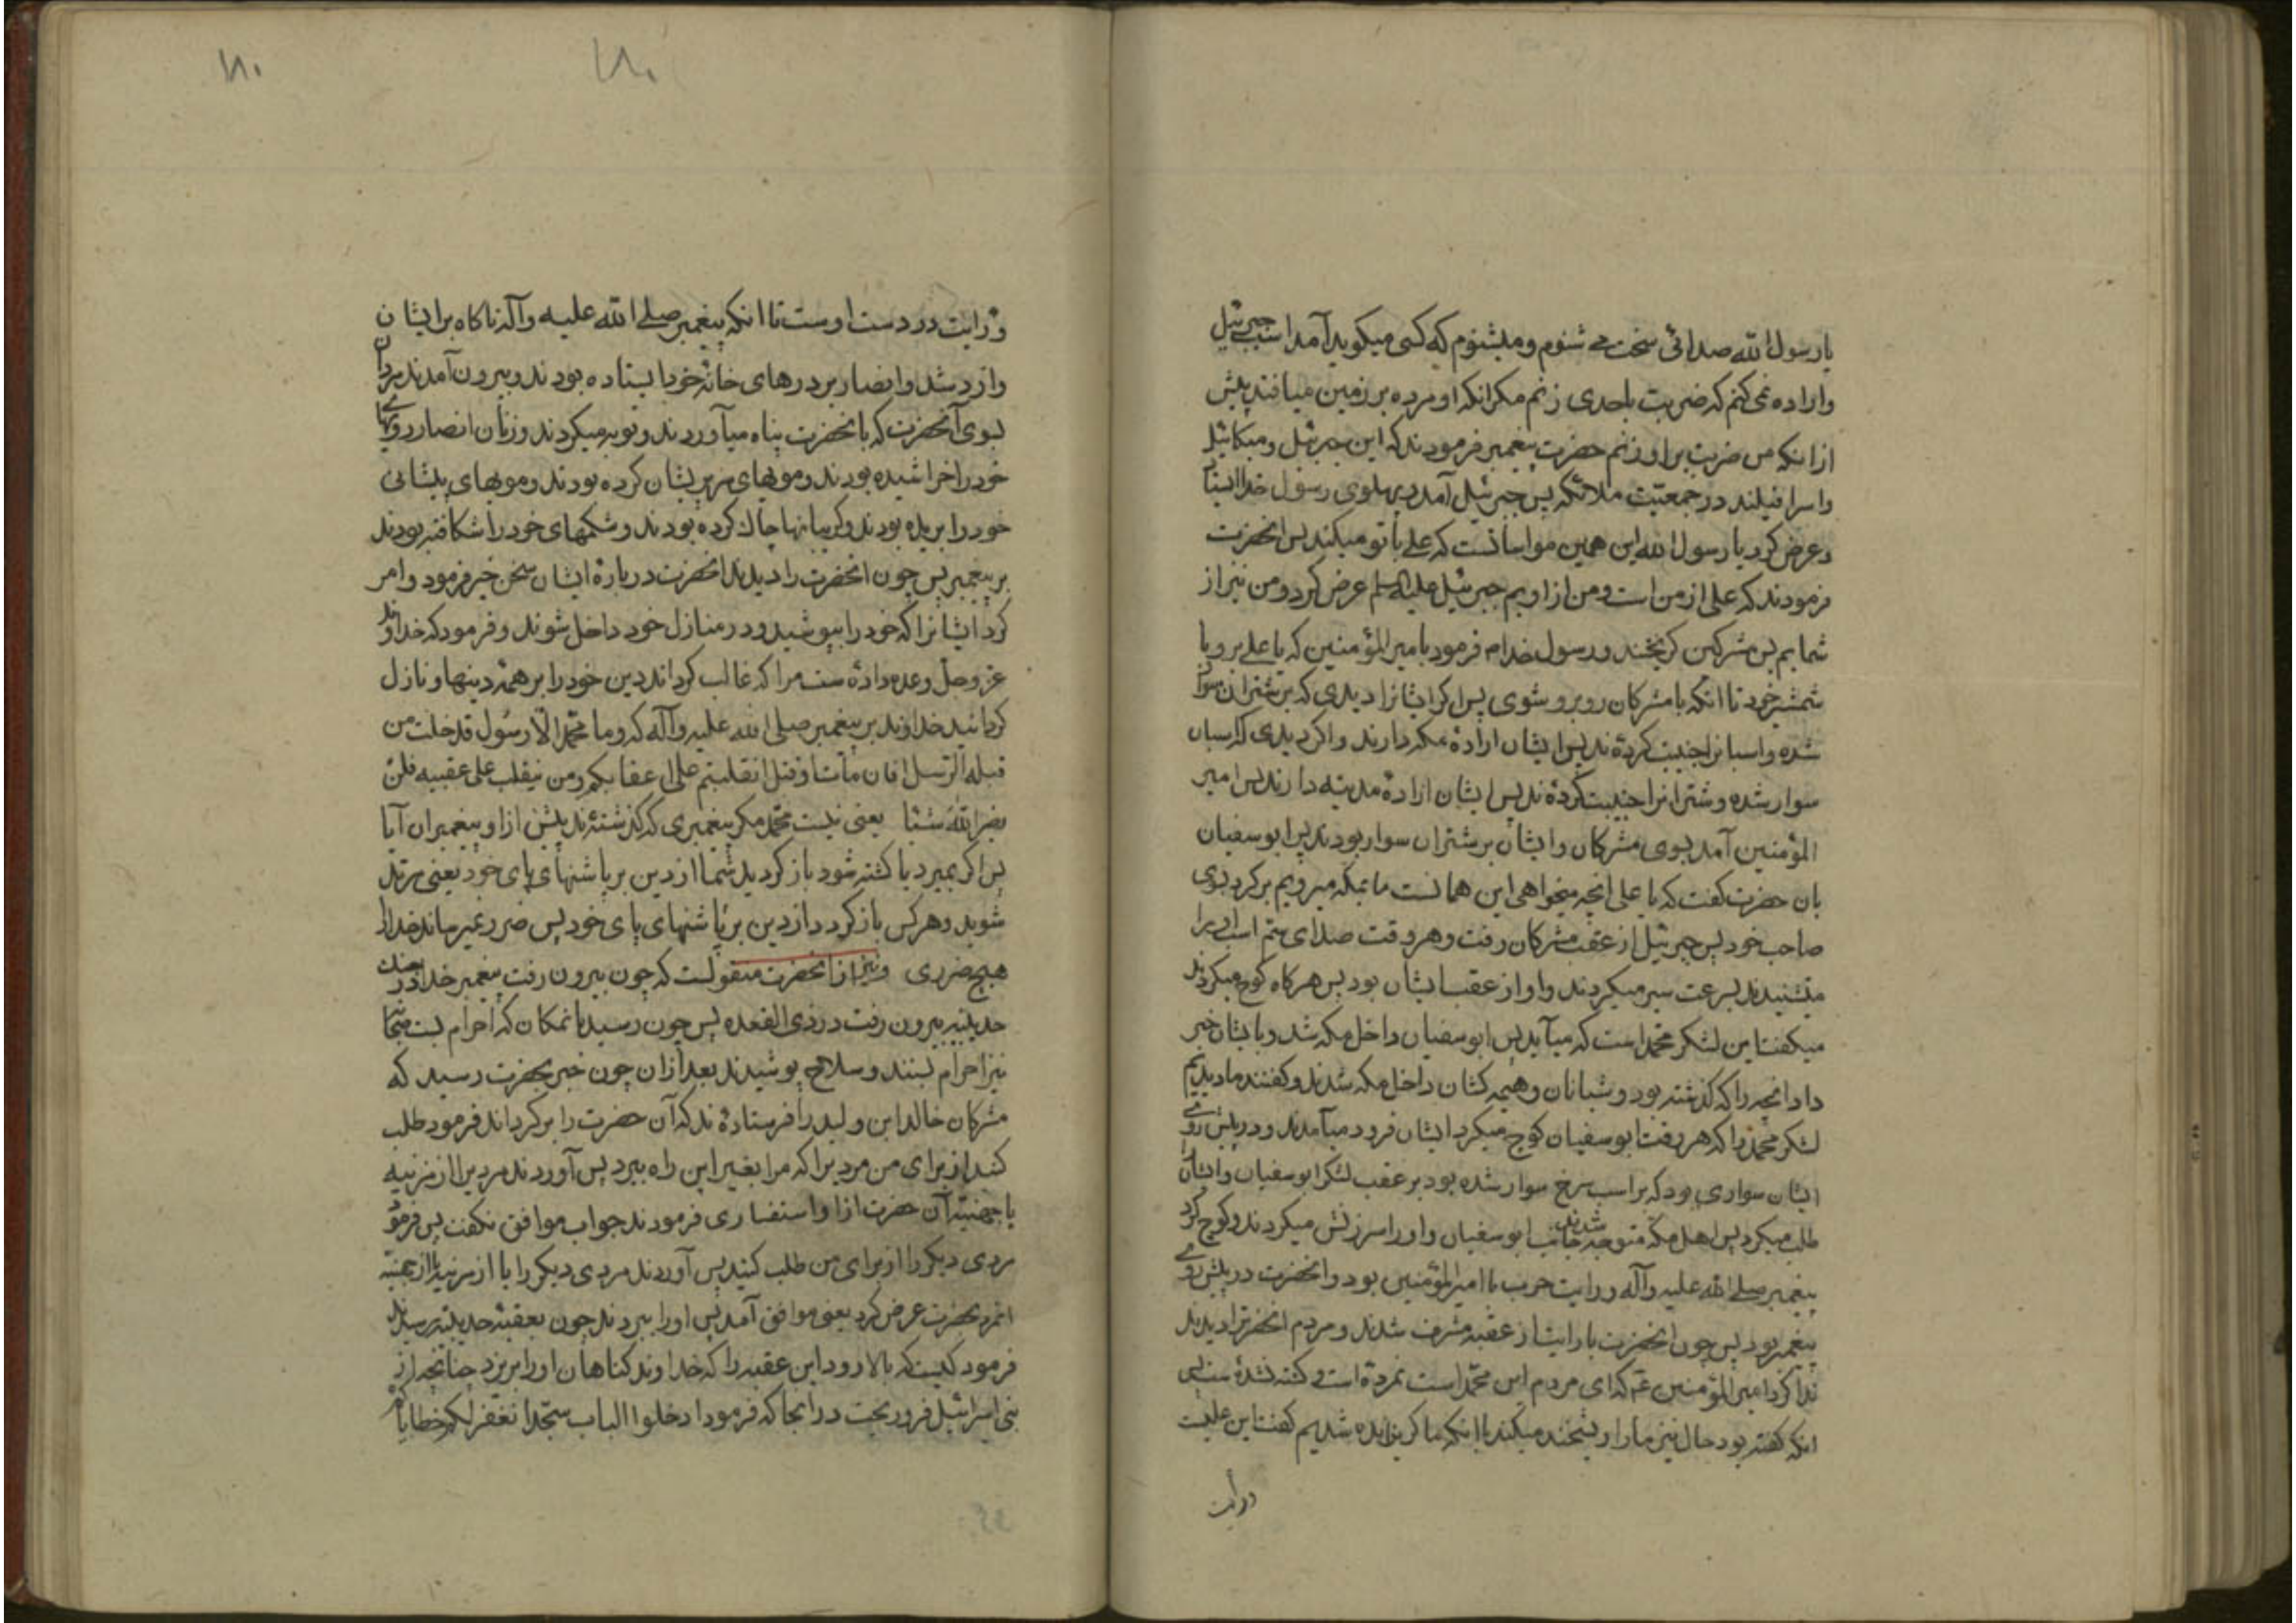 یا رسول الله صدائی سخت می شنوم و میشنوم که کسی میکوید آمد اسب جبرئیل
واراده نمی کنم که ضربت باحدی زنم مکر انکه او مرده بر زمین میافتد پیش
از انکه من ضربت براو زنم حضرت پیغمبر فرمودند که این جبرئیل و میکائیل
واسرافیلند در جمعیّت ملائکه پس جبرئیل آمد و پهلوی رسول خدا ایستاد
وعرض کرد یا رسول الله این همین مواساتست که علی با تو میکند پس انحضرت
فرمودند که علی از من است و من از اویم جبرئیل علیه السلم عرض کرد و من نیز از
شمایم پس مشرکین کریختند و رسول خدا م فرمود بامیر المؤمنین که یا علی برو با
شمشیر خود تا انکه با مشرکان روبرو شوی پس اکر ایشانرا دیدی که بر شتران سوار
شده و اسبانرا جنیبت کردهٔ ند پس ایشان ارادهٔ مکه دارند و اکر دیدی که اسبان
سوار شده و شترانرا جنیبت کردهٔ ند پس ایشان ارادهٔ مدینه دارند پس امیر
المؤمنین آمد بسوی مشرکان و ایشان بر شتران سوار بودند پس ابو سفیان
بان حضرت کفت که یا علی انچه میخواهی این همانست ما بمکه میرویم برکرد بسوی
صاحب خود پس جبرئیل از عقب مشرکان رفت و هر وقت صدای سّم اسب او را
میشنیدند بسرعت سیر میکردند و او از عقب ایشان بود پس هرکاه کوچ میکردند
میکفتند این لشکر محمّد است که میآید پس ابو سفیان داخل مکه شد و بایشان خبر
داد انچه را که کذشته بود و شبانان و هیمه کشان داخل مکه شدند و کفتند ما دیدیم
لشکر محمّد را که هر وقت ابو سفیان کوچ میکرد ایشان فرود میآمدند و در پیش روی
ایشان سواری بود که بر اسب سرخ سوار شده بود بر عقب لشکر ابو سفیان و ایشان را
طلب میکرد پس اهل مکّه متوجه شدند بجانب ابو سفیان و او را سرزنش میکردند و کوچ کرد
پیغمبر صلی الله علیه وآله و رایت حرب با امیر المؤمنین بود و انحضرت در پیش روی
پیغمبر بود پس چون انحضرت با رایت از عقبه مشرف شدند و مردم انحضرترا دیدند
ندا کرد امیر المؤمنین ع که ای مردم این محمّد است نمردهٔ است و کشته نشدهٔ است پس
انکه کفته بود حال نیز ما را ریشخند میکند با انکه ما کریزانده شدیم کفت این علیست
ورایت
ورایت در دست اوست تا انکه پیغمبر صلی الله علیه وآله ناکاه بر ایشان
وارد شد و انصار بر درهای خانهٔ خود ایستاده بودند و بیرون آمدند مردان
بسوی آنحضرت که بانحضرت پناه میآوردند و توبه میکردند و زنان انصار رویهای
خود را خراشیده بودند و مویهای سر پریشان کرده بودند و مویهای پیشانی
خود را بریده بودند و کریبانها چاک کرده بودند و شکمهای خود را شکافته بودند
بر پیغمبر پس چون انحضرت را دیدند انحضرت در بارهٔ ایشان سخن خیر فرمود و امر
کرد ایشانرا که خود را بپوشید و در منازل خود داخل شوند و فرمود که خداوند
عز و جل وعده دادهٔ است مرا که غالب کرداند دین خود را بر همهٔ دینها و نازل
کردانید خداوند بر پیغمبر صلی الله علیه وآله که وما محمّد الّا رسُول قد خلت من
قبله الرسل افان مات او قتل انقلبتم علی اعقابکم ومن ینقلب علی عقبیه فلن
یضر اللهَ شیئا یعنی نیست محمّد مکر پیغمبری که کذشتهٔ ند پیش از او پیغمبران آیا
پس اکر بمیرد یا کشته شود باز کردید شما از دین بر پاشنهای پای خود یعنی مرتد
شوید و هر کس باز کردد از دین بر پاشنهای پای خود پس ضرر نمیرساند خدا را
هیچ ضرری ونیز از انحضرت منقولست که چون بیرون رفت پیغمبر خدا در جنک
حدیبیّه بیرون رفت در ذی القعده پس چون رسید بانمکان که احرام بست صحابه
نیز احرام بستند و سلاح پوشیدند بعد از ان چون خبر بحضرت رسید که
مشرکان خالد ابن ولید را فرستادهٔ ند که آن حضرت را برکرداند فرمود طلب
کنید از برای من مردیرا که مرا بغیر این راه ببرد پس آوردند مردیرا از مزنیه
یا جهنیّه آن حضرت از او استفساری فرمودند جواب موافق نکفت پس فرمود
مردی دیکر را از برای من طلب کنید پس آوردند مردی دیکر را یا از مزنیه یا از جهنیّه
انمرد بحضرت عرض کرد یعنی موافق آمد پس او را ببردند چون بعقبهٔ حدیبیّه رسیدند
فرمود کیست که بالا رود این عقبه را که خداوند کناهان او را بریزد چنانچه از
بنی اسرائیل فرو ریخت در انجا که فرمود ادخلوا الباب سجّدا نغفر لکم خطایاکم
۱۸۰
۱۸۰